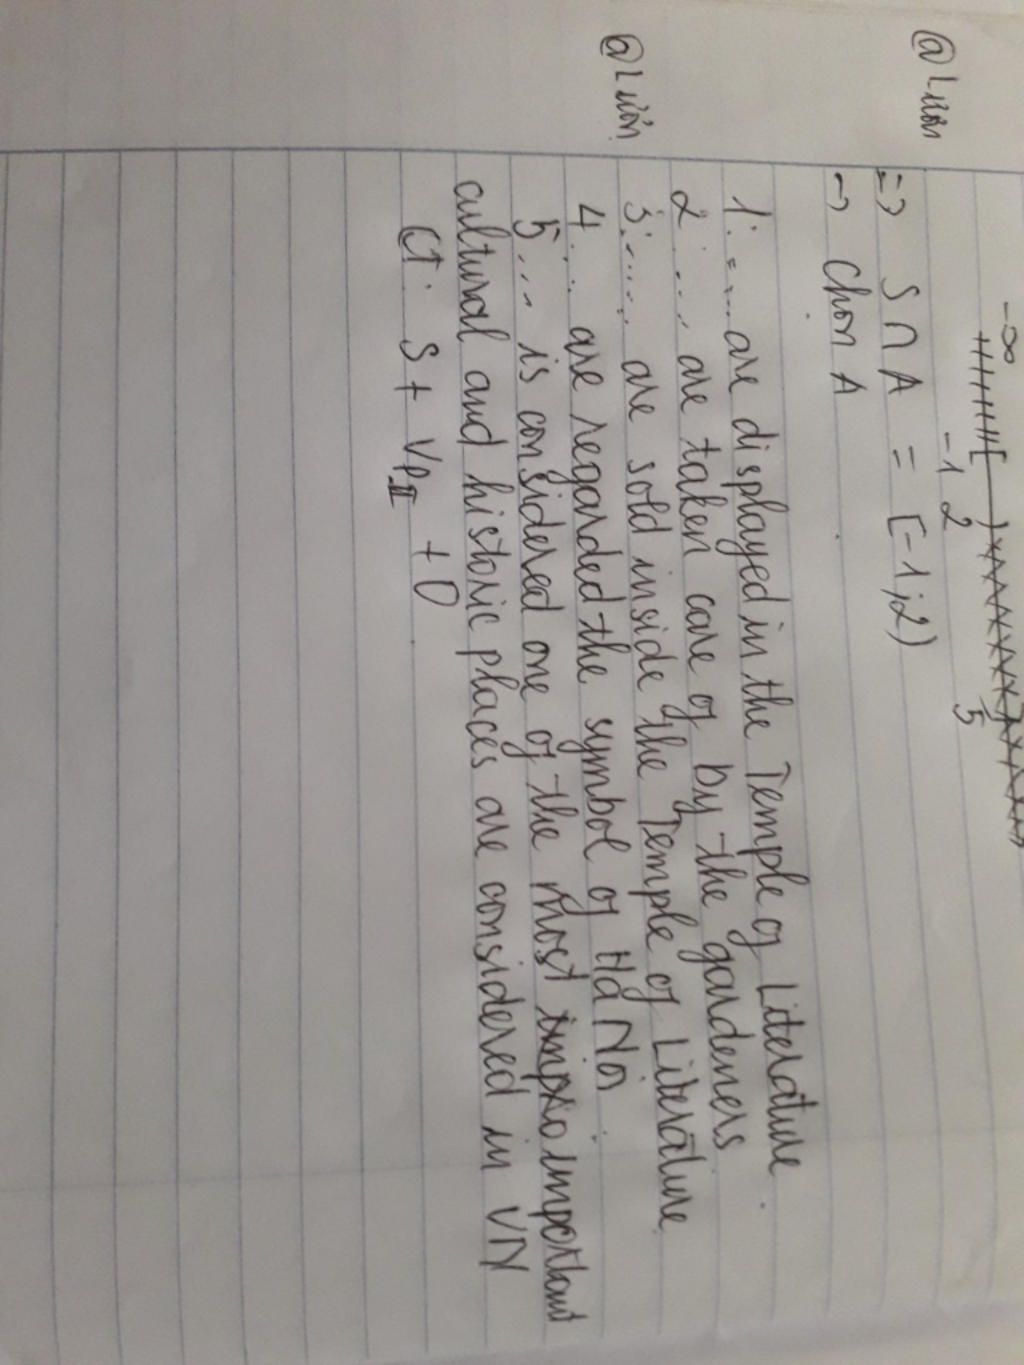 -∞
-1 2 5
@Lươn
=> S ∩ A = [-1;2)
-> Chọn A
1. .... are displayed in the Temple of Literature.
2. ... are taken care of by the gardeners
@Lươn
3. ..... are sold inside the Temple of Literature.
4. ... are regarded the symbol of Hà Nội.
5 ... is considered one of the most important
cultural and historic places are considered in VN
CT: S + VpII + O